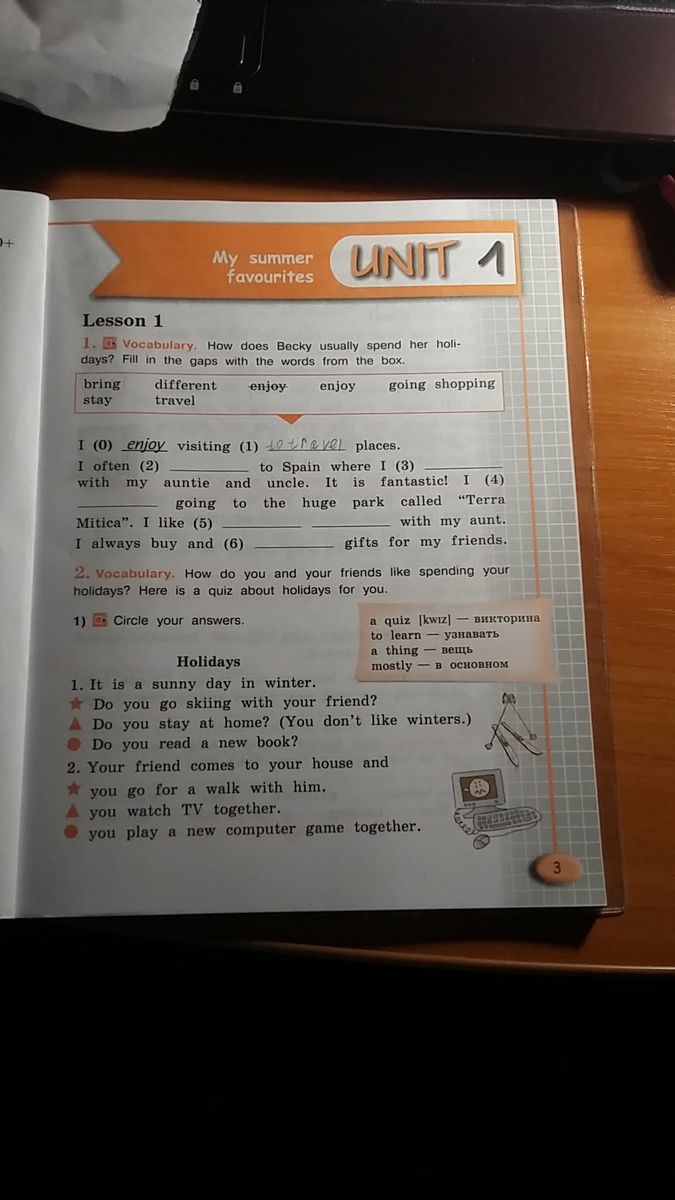 0+
My summer
favourites
UNIT 1
Lesson 1
1. Vocabulary. How does Becky usually spend her holi-
days? Fill in the gaps with the words from the box.
bring different enjoy enjoy going shopping
stay travel
I (0) enjoy visiting (1) to travel places.
I often (2) ________ to Spain where I (3) ________
with my auntie and uncle. It is fantastic! I (4)
________ going to the huge park called "Terra
Mitica". I like (5) ________ ________ with my aunt.
I always buy and (6) ________ gifts for my friends.
2. Vocabulary. How do you and your friends like spending your
holidays? Here is a quiz about holidays for you.
1) Circle your answers.
a quiz [kwɪz] — викторина
to learn — узнавать
a thing — вещь
mostly — в основном
Holidays
1. It is a sunny day in winter.
Do you go skiing with your friend?
Do you stay at home? (You don't like winters.)
Do you read a new book?
2. Your friend comes to your house and
you go for a walk with him.
you watch TV together.
you play a new computer game together.
3